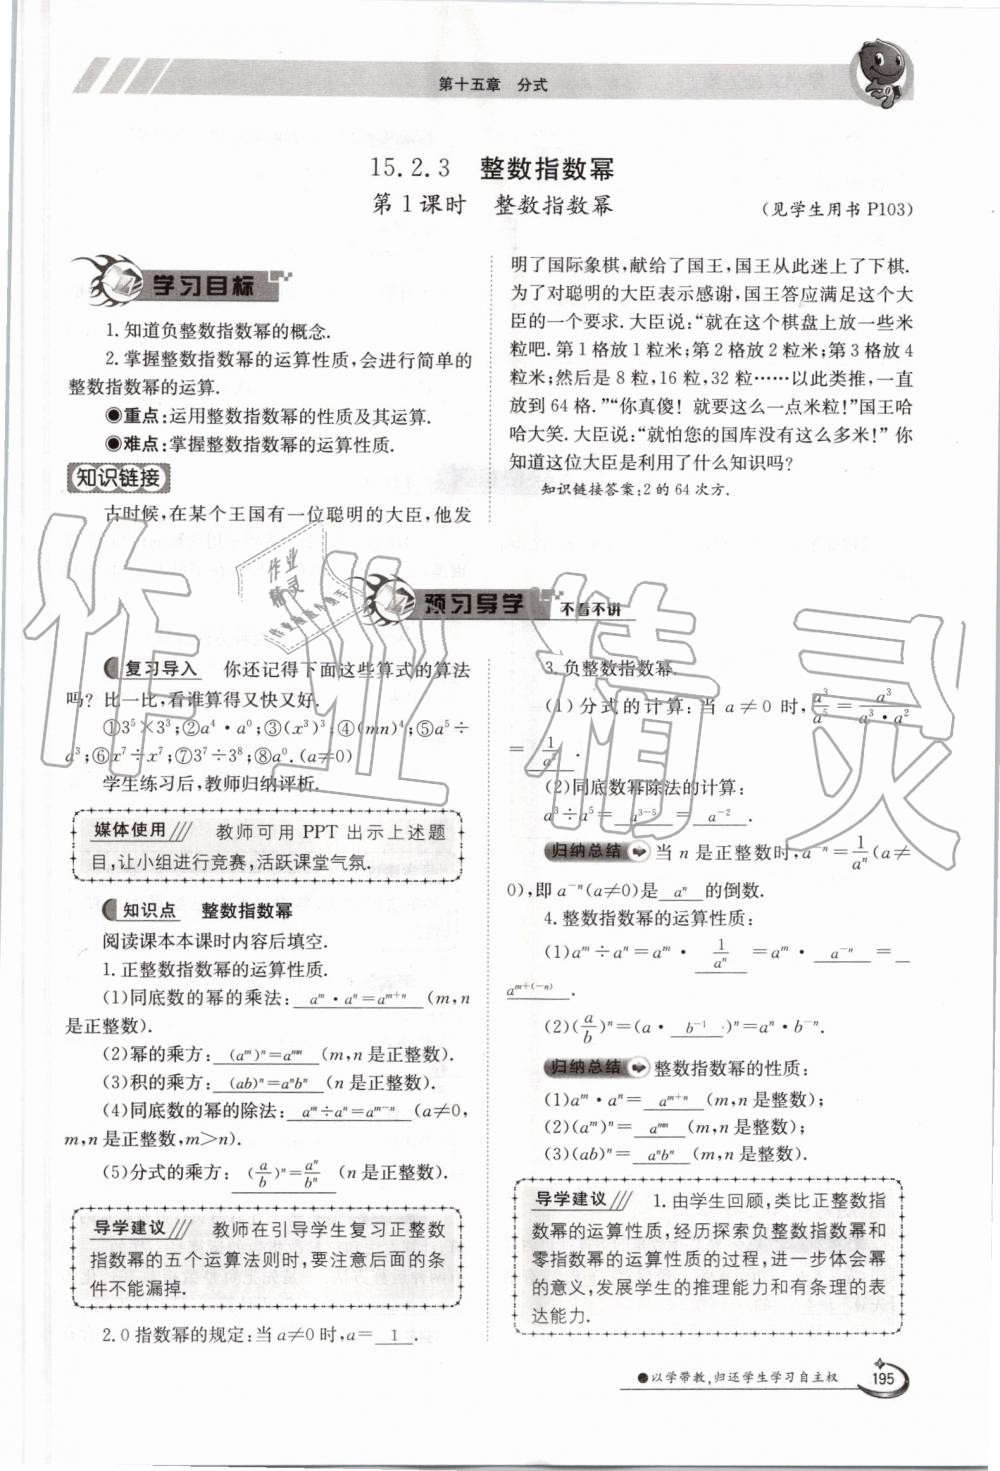 第十五章 分式
15.2.3 整数指数幂
第1课时 整数指数幂
(见学生用书 P103)
学习目标
1.知道负整数指数幂的概念.
2.掌握整数指数幂的运算性质,会进行简单的
整数指数幂的运算.
◉重点:运用整数指数幂的性质及其运算.
◉难点:掌握整数指数幂的运算性质.
知识链接
古时候,在某个王国有一位聪明的大臣,他发
明了国际象棋,献给了国王,国王从此迷上了下棋.
为了对聪明的大臣表示感谢,国王答应满足这个大
臣的一个要求.大臣说:“就在这个棋盘上放一些米
粒吧.第1格放1粒米;第2格放2粒米;第3格放4
粒米;然后是8粒,16粒,32粒……以此类推,一直
放到64格.”“你真傻!就要这么一点米粒!”国王哈
哈大笑.大臣说:“就怕您的国库没有这么多米!”你
知道这位大臣是利用了什么知识吗?
知识链接答案:2的64次方.
预习导学 不看不讲
复习导入 你还记得下面这些算式的算法
吗?比一比,看谁算得又快又好.
①3⁵×3³;②a⁴·a⁰;③(x³)³;④(mn)⁴;⑤a⁵÷
a³;⑥x⁷÷x⁷;⑦3⁷÷3⁸;⑧a⁰.(a≠0)
学生练习后,教师归纳评析.
媒体使用/// 教师可用PPT出示上述题
目,让小组进行竞赛,活跃课堂气氛.
知识点 整数指数幂
阅读课本本课时内容后填空.
1.正整数指数幂的运算性质.
(1)同底数的幂的乘法: aᵐ·aⁿ=aᵐ⁺ⁿ (m,n
是正整数).
(2)幂的乘方: (aᵐ)ⁿ=aᵐⁿ (m,n是正整数).
(3)积的乘方: (ab)ⁿ=aⁿbⁿ (n是正整数).
(4)同底数的幂的除法: aᵐ÷aⁿ=aᵐ⁻ⁿ (a≠0,
m,n是正整数,m>n).
(5)分式的乘方: (a/b)ⁿ=aⁿ/bⁿ (n是正整数).
导学建议/// 教师在引导学生复习正整数
指数幂的五个运算法则时,要注意后面的条
件不能漏掉.
2.0指数幂的规定:当a≠0时,a= 1 .
3.负整数指数幂.
(1)分式的计算:当a≠0时,a³/a⁵=a³/(a³·a²)
= 1/a² .
(2)同底数幂除法的计算:
a³÷a⁵= a³⁻⁵ = a⁻² .
归纳总结 当n是正整数时,a⁻ⁿ=1/aⁿ(a≠
0),即a⁻ⁿ(a≠0)是 aⁿ 的倒数.
4.整数指数幂的运算性质:
(1)aᵐ÷aⁿ=aᵐ· 1/aⁿ =aᵐ· a⁻ⁿ =
aᵐ⁺⁽⁻ⁿ⁾ .
(2)(a/b)ⁿ=(a· b⁻¹ )ⁿ=aⁿ·b⁻ⁿ.
归纳总结 整数指数幂的性质:
(1)aᵐ·aⁿ= aᵐ⁺ⁿ (m,n是整数);
(2)(aᵐ)ⁿ= aᵐⁿ (m,n是整数);
(3)(ab)ⁿ= aⁿbⁿ (m,n是整数).
导学建议/// 1.由学生回顾,类比正整数指
数幂的运算性质,经历探索负整数指数幂和
零指数幂的运算性质的过程,进一步体会幂
的意义,发展学生的推理能力和有条理的表
达能力.
●以学带教,归还学生学习自主权
195
作业精灵
作业
精灵